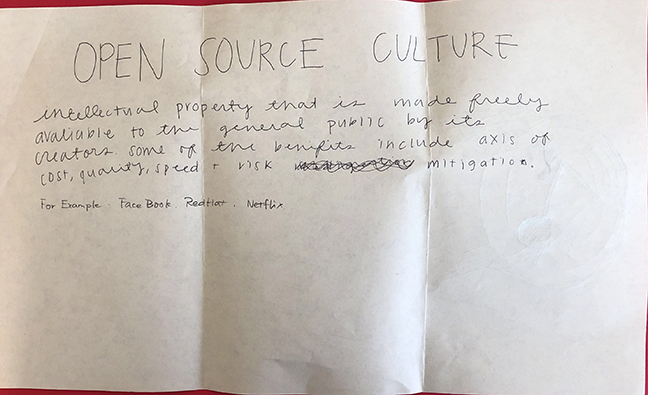 OPEN SOURCE CULTURE
intellectual property that is made freely
avaliable to the general public by its
creators. some of the benefits include axis of
cost, quality, speed + risk mitigation.
For Example. Face Book. RedHat. Netflix